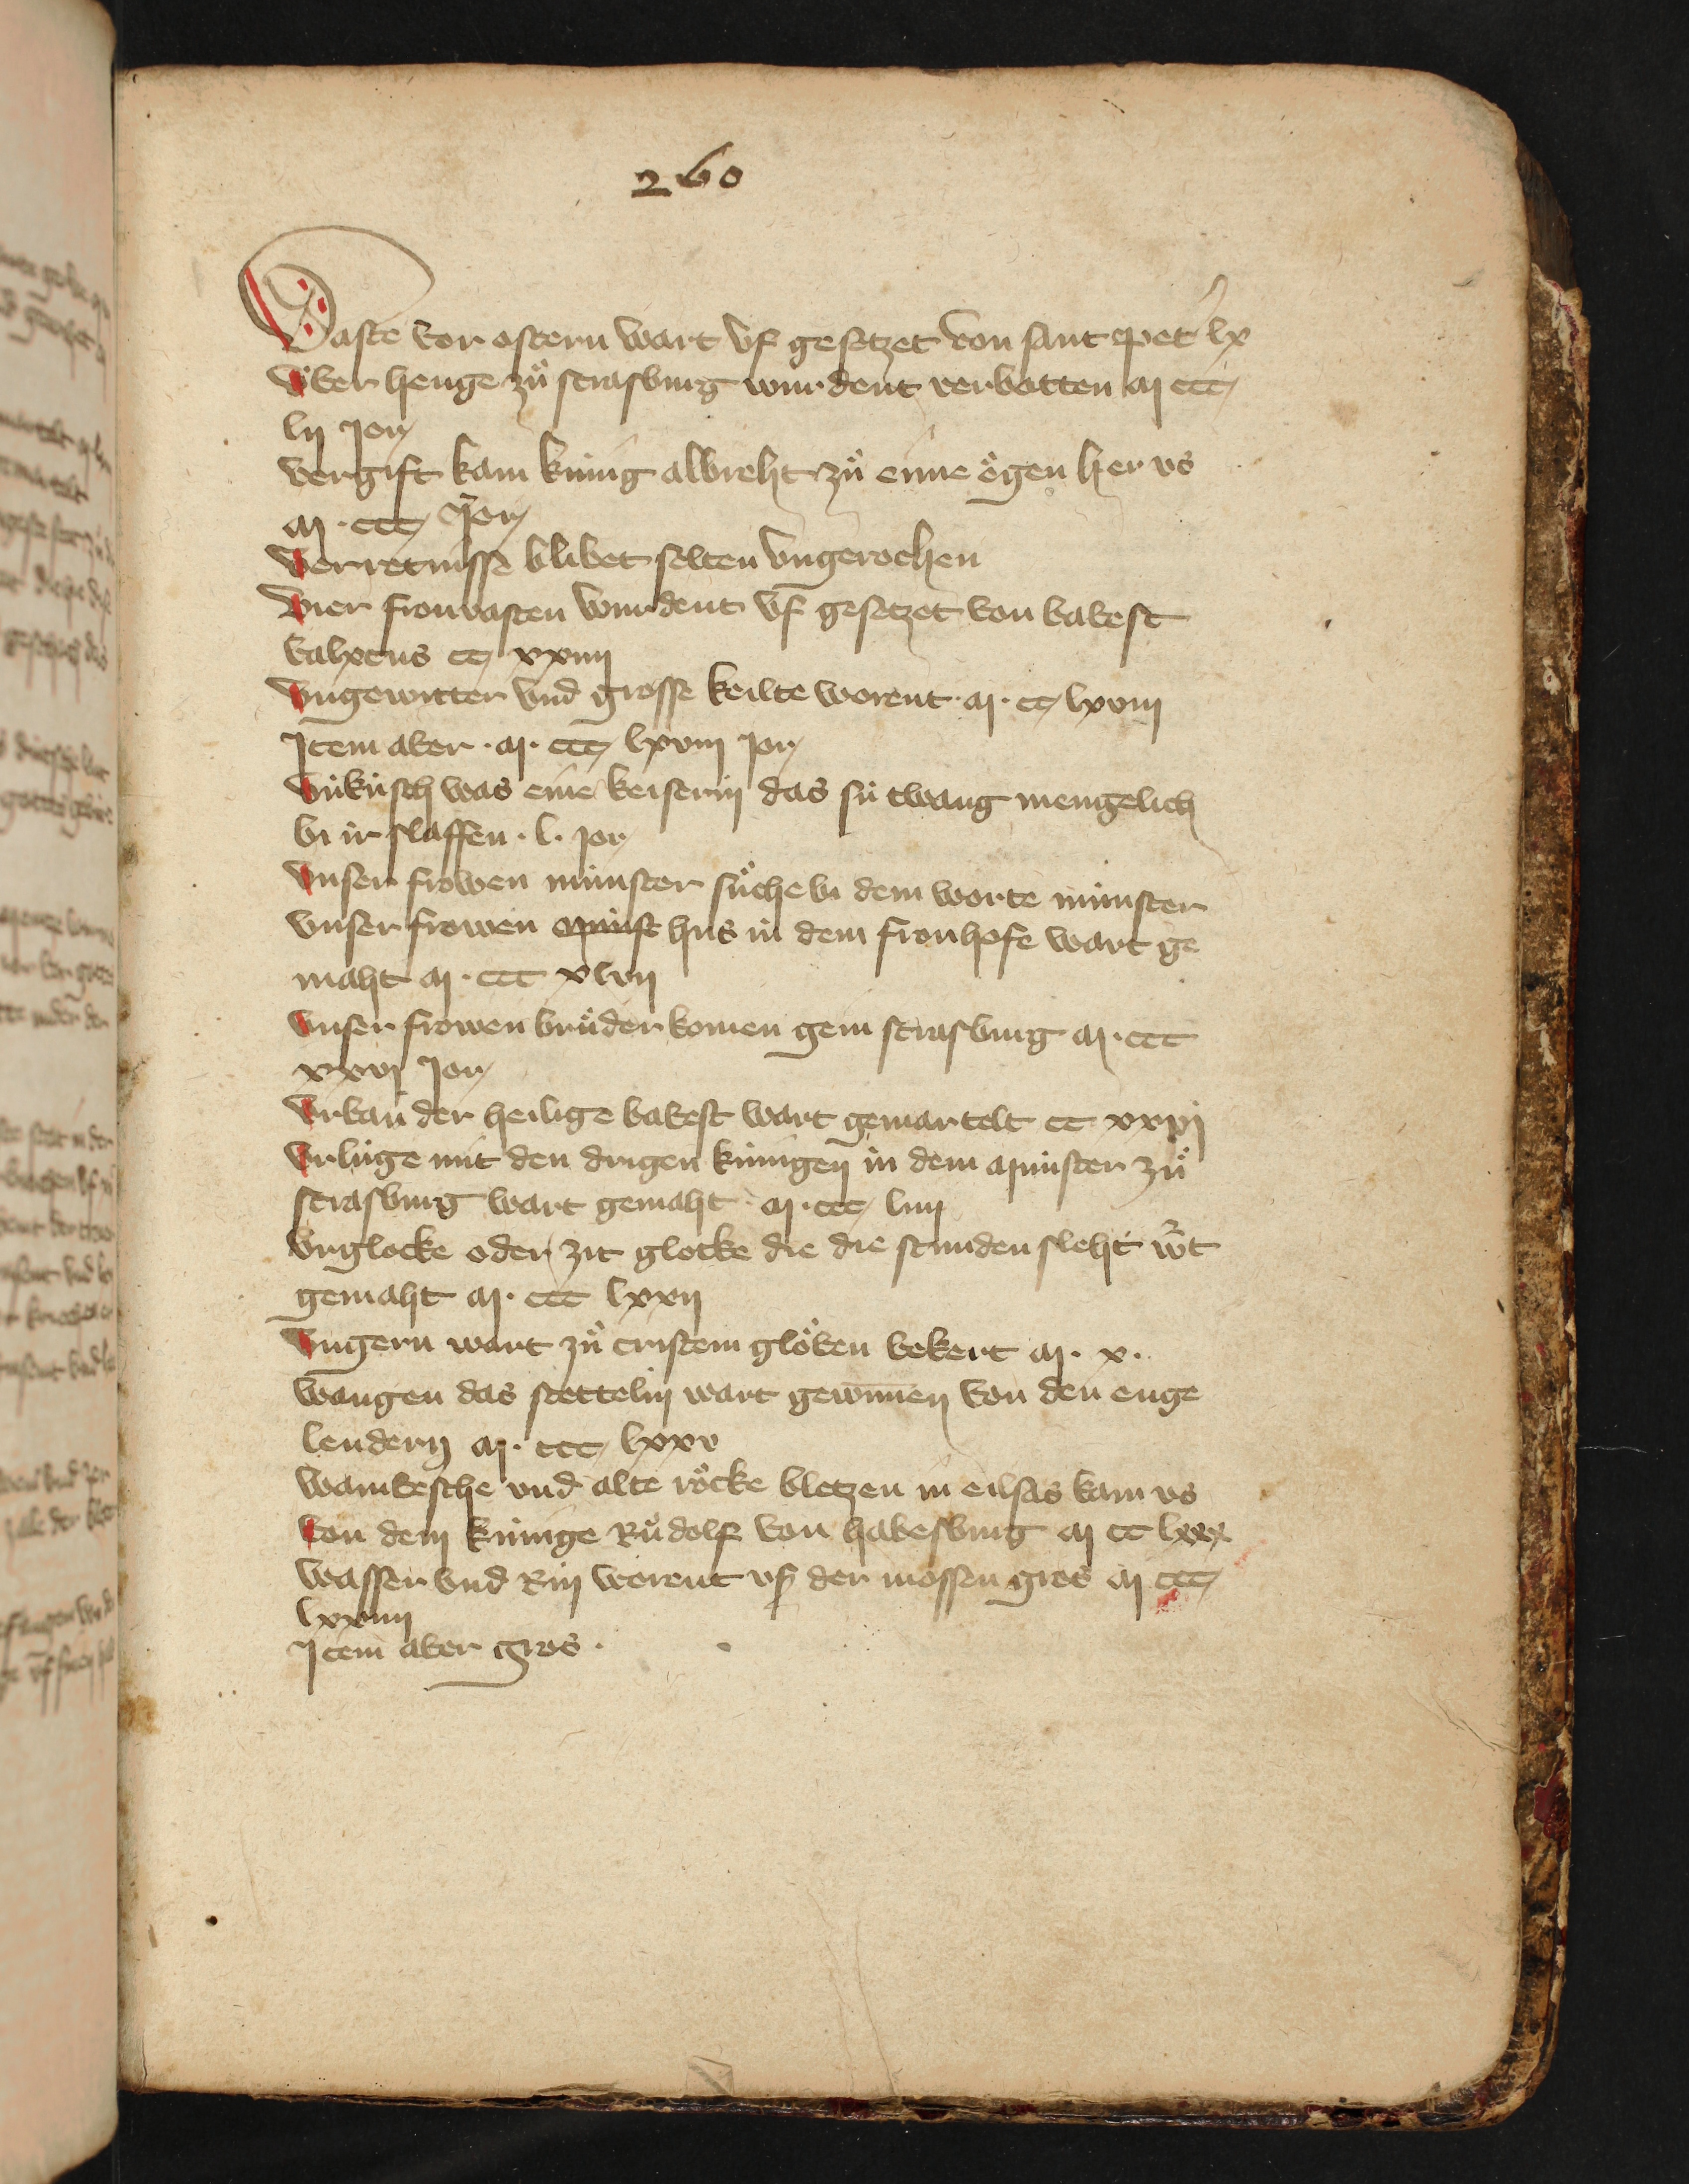 260
Vaste vor ostern wart vf gesetzet von sant Peter lx
Vͤber henge zuͦ strasburg wurdent verbotten M ccc
lij jor
Vergift kam kúnig albreht zuͦ eime oͤgen her us
M . ccc jor
Verretnisse blibet selten vngerochen
Vier fronvasten wurdent vf gesetzet von babest
kalixtus cc xxiiij
Vngewitter vnd grosse keilte worent . M . cc lxviij
Jtem aber . M . ccc lxviij jor
Vnkúsch was eine keiserin das sú twang mengelich
bi ir slaffen . l . jor
Vnser frowen múnster suͦche bi dem worte múnster
Vnser frowen hus in dem fronhofe wart ge
maht M . ccc xlvij
Vnser frowen bruͤder komen gein strasburg M . ccc
xxvj jor
Vrban der heilige babest wart gemartelt cc xxvj
Vrlúge mit den drigen kúnigen in dem Múnster zuͦ
strasburg wart gemaht . M . ccc liiij
Vrglocke oder zit glocke die die stunden sleht wͦt
gemaht M . ccc lxxij
Vngern wart zuͦ cristem gloͤben bekert M . x .
Wangen das stettelin wart gewunnen von den enge
lendern M . ccc lxxv
Wambesche vnd alte roͤcke bletzen in eilsas kam us
von dem kúnige Ruͦdolf von habesburg M cc lxxx
Wasser vnd Rin worent us der mossen gros M ccc
lxxiiij
Jtem aber gros .